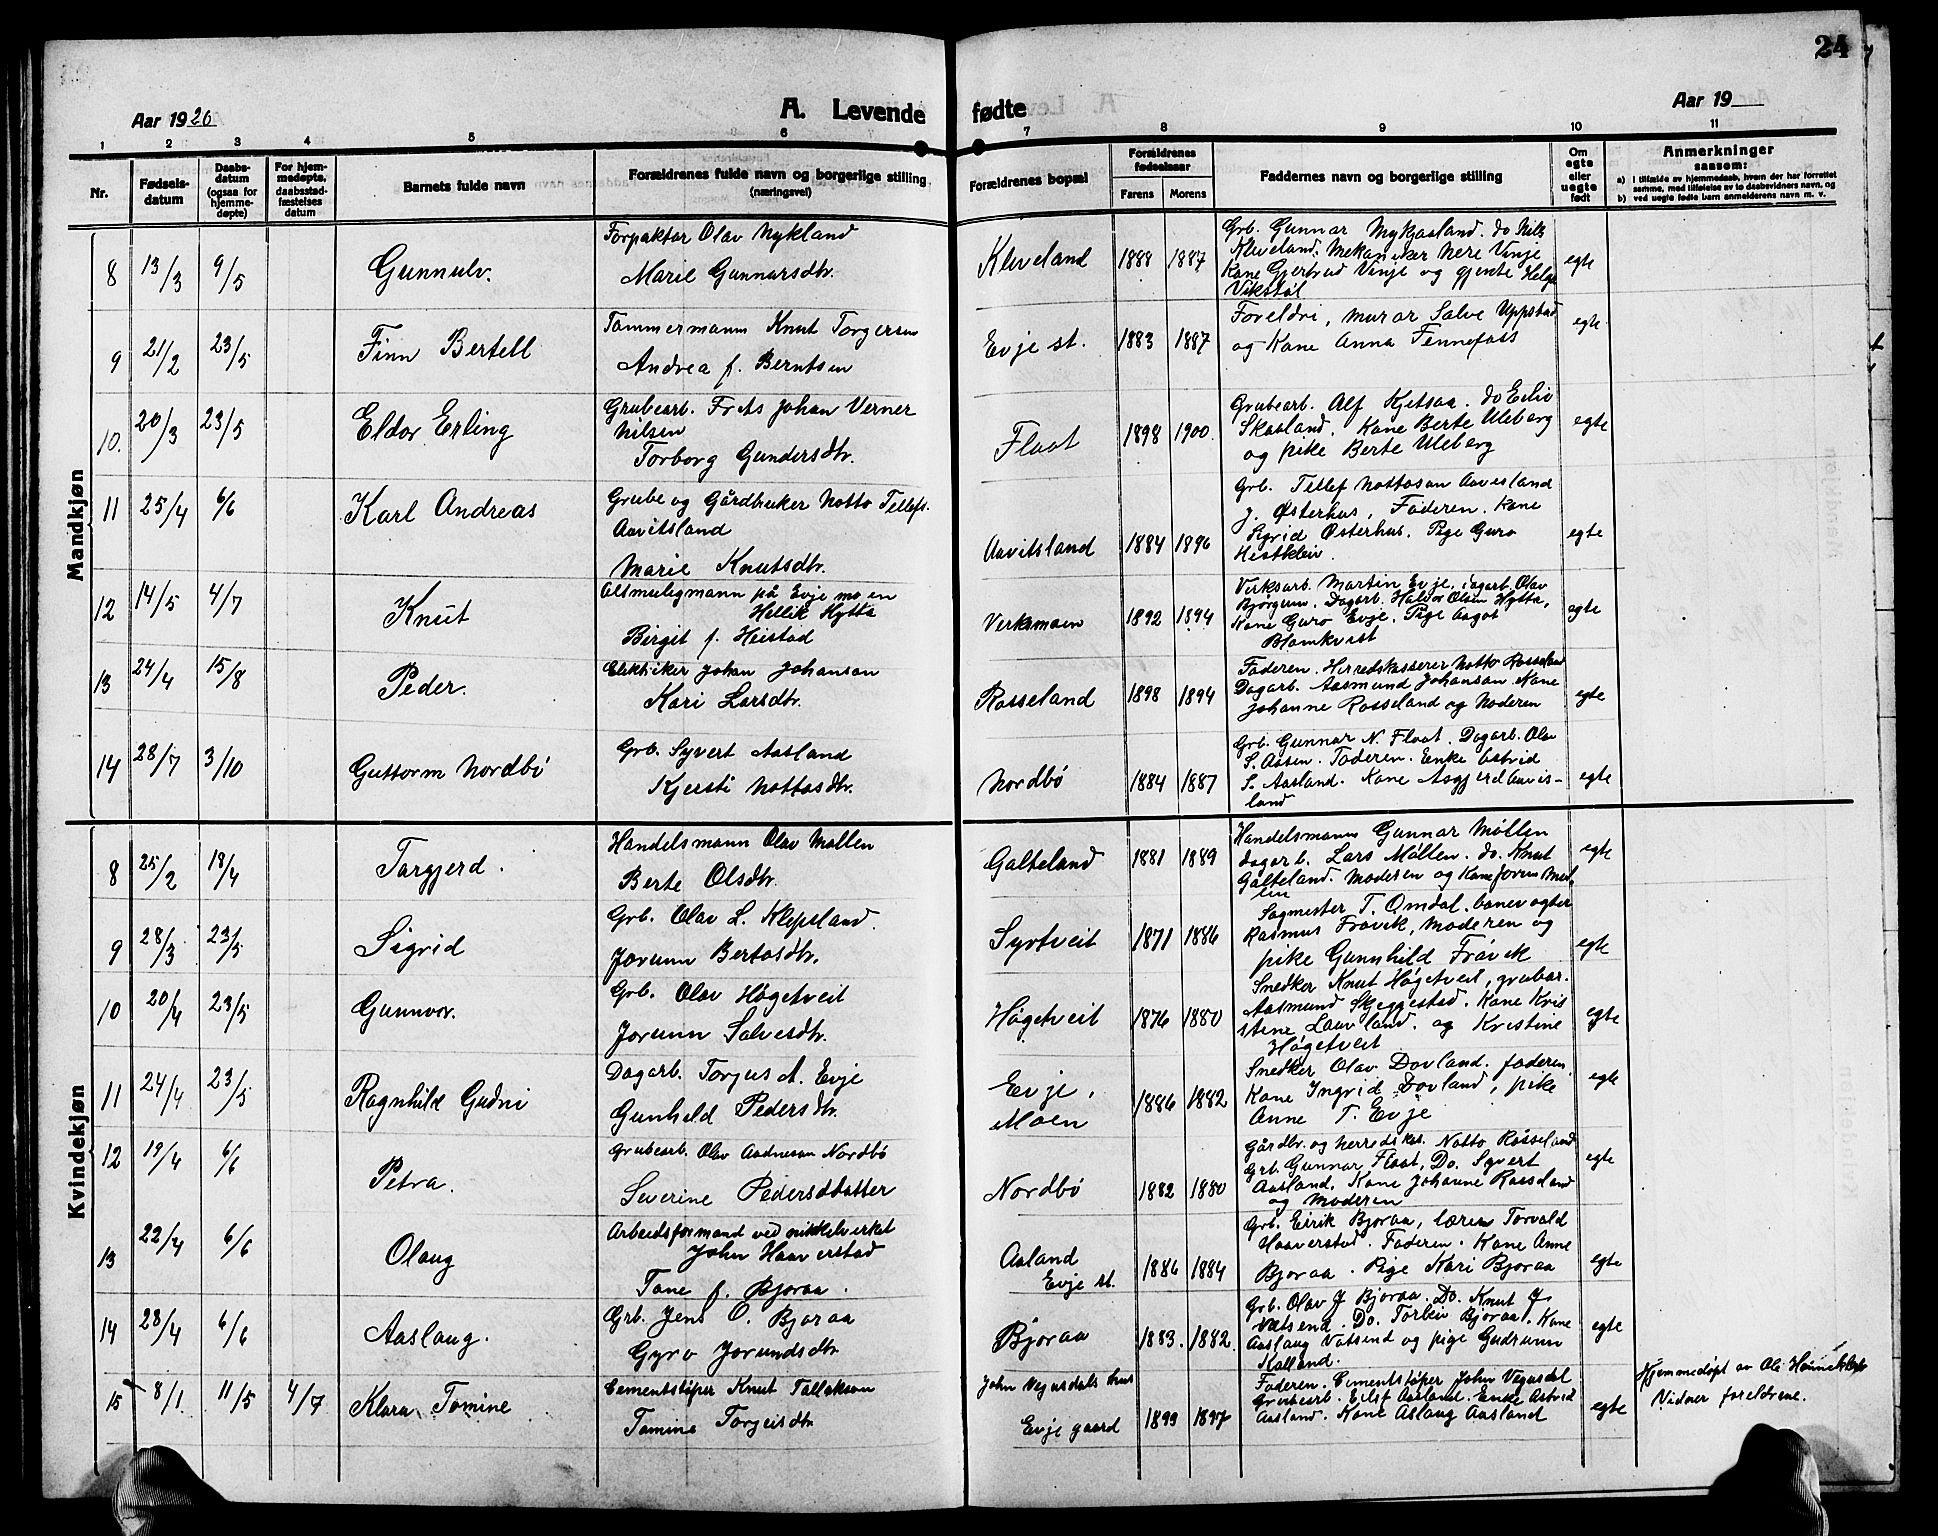 24
Aar 1920
A. Levende fødte
Aar 19
1 2 3 4 5 6 7 8 9 10 11
Nr.
Fødsels-
datum
Daabs-
datum
(ogsaa for
hjemme-
døpte)
For hjem-
medøpte,
daabsstad-
fæstelses
datum
Barnets fulde navn
Forældrenes fulde navn og borgerlige stilling
(næringsvei)
Forældrenes bopæl
Forældrenes
fødselsaar
Farens Morens
Faddernes navn og borgerlige stilling
Om
egte
eller
uegte
født
Anmerkninger
saasom:
a) i tilfælde av hjemmedaab, hvem der har forrettet
samme, med tilføielse av to daabsvidners navn, og
b) ved uegte fødte barn anmelderens navn m. v.
Mandkjøn
8 13/3 9/5 Gunnulv.
Forpaktar Olav Mykland
Marie Gunnarsdtr.
Kleveland 1888 1887
Grb. Gunnar Mykjaaland. do Nils
Kleveland. Mekaniker Nere Vinje
Kane Gjertrud Vinje og gjente Helga
Vikstøl
egte
9 21/2 23/5 Finn Bertell
Tømmermann Knut Torgersen
Andrea f. Berntsen
Evje st. 1883 1887
Foreldri, murar Salve Uppstad
og Kane Anna Fennefoss
egte
10. 20/3 23/5 Eldor Erling
Grubearb. Frits Johan Verner
Nilsen
Torborg Gundersdtr.
Flaat 1898 1900.
Grubearb. Alf Kjetsaa. do Eiliv
Skaaland. Kane Berte Uleberg
og pike Berte Uleberg
egte
11 25/4 6/6 Karl Andreas
Grube og Gårdbruker Notto Tellefs.
Aavitsland
Marie Knutsdtr.
Aavitsland 1884 1896
Grb. Tellef Nottosen Aavisland
J. Østerhus, Faderen. Kane
Sigrid Østerhus. Pige Guro
Hestkleiv.
egte
12 14/5 4/7 Knut
Altmuligmann på Evje mo en
Hellik Hytta
Birgit f. Heistad
Verksmoen 1892 1894
Verksarb. Martin Evje. Dagarb. Olav
Bjørgum. Dagarb. Halvor Olsen Hytta,
Kane Guro Evje. Pige Aagot
Blomkvist
egte
13 24/4 15/8 Peder.
Elektriker Johan Johanson
Kari Larsdtr.
Rosseland 1898 1894
Faderen. Herredskasserer Notto Rosseland
Dagarb. Aasmund Johanson. Kane
Johanne Rosseland og Moderen
egte
14 28/7 3/10 Guttorm Nordbø
Grb. Syvert Aasland
Kjersti Nottosdtr.
Nordbø 1884 1887
Grb. Gunnar N. Flaat. Dagarb. Olav
S. Aasen. Faderen. Enke Astrid
S. Aasland. Kane Asgjerd Aavis-
land
egte
Kvindekjøn
8 25/2 18/4 Targjerd.
Handelsmann Olav Møllen
Berte Olsdtr.
Galteland 1881 1889
Handelsmann Gunnar Møllen
dagarb. Lars Møllen. do. Knut
Galteland. Moderen og Kane Joren Møl-
len
egte
9 28/3 23/5 Sigrid
Grb. Olav L. Klepsland.
Jorunn Bertosdtr.
Syrtveit 1871 1886
Sagmester T. Omdal. banevogter
Rasmus Frøvik, Moderen og
pike Gunnhild Frøvik
egte
10 20/4 23/5 Gunnvor.
Grb. Olav Høgetveit
Jorunn Salvesdtr.
Høgetveit 1876 1880
Snedker Knut Høgetveit, grubar.
Aasmund Skjeggestad. Kane Kris
stene Lauvland. og Kristine
Høgetveit
egte
11 24/4 23/5 Ragnhild Gudni
Dagarb. Torjus A. Evje
Gunhild Pedersdtr.
Evje,
Moen 1886 1882
Snedker Olav Dovland. faderen
Kane Ingrid Dovland, pike
Anne T. Evje
egte
12 19/4 6/6 Petra.
Grubearb. Olav Aadneson Nordbø
Severine Pedersdatter
Nordbø 1882 1880
Gårdbr. og herredskas. Notto Rosseland
Grb. Gunnar Flaat, Do. Syvert
Aasland. Kane Johanne Rosseland
og Moderen
egte
13 22/4 6/6 Olaug
Arbeidsformand ved nikkelverket
John Haaverstad
Tone f. Bjoraa.
Aasland
Evje st. 1886 1884
Grb. Eirik Bjoraa, lærer Torvald
Haaverstad. Faderen. Kane Anne
Bjoraa. Pige Kari Bjoraa
egte
14 28/4 6/6 Aaslaug.
Grb. Jens O. Bjoraa
Gyro Jorundsdtr
Bjoraa 1883. 1882.
Grb. Olav J Bjoraa. Do. Knut J.
Vatsend. Do. Torleiv Bjoraa. Kane
Aaslaug Vatsend og pige Gudrunn
Kalland.
egte
15 8/1 11/5 4/7 Klara Tomine
Cementstøper Knut Tallakson
Tomine Torgeisdtr
John Vegusdals hus
Evje gaard 1899 1897
Faderen. Cementstøper John Vegusdal
Grubearb. Eilef Aasland. Enke Astrid
Aasland. Kane Aslaug Aasland
egte
Hjemmedøpt av Ole
Vidner foreldrene.